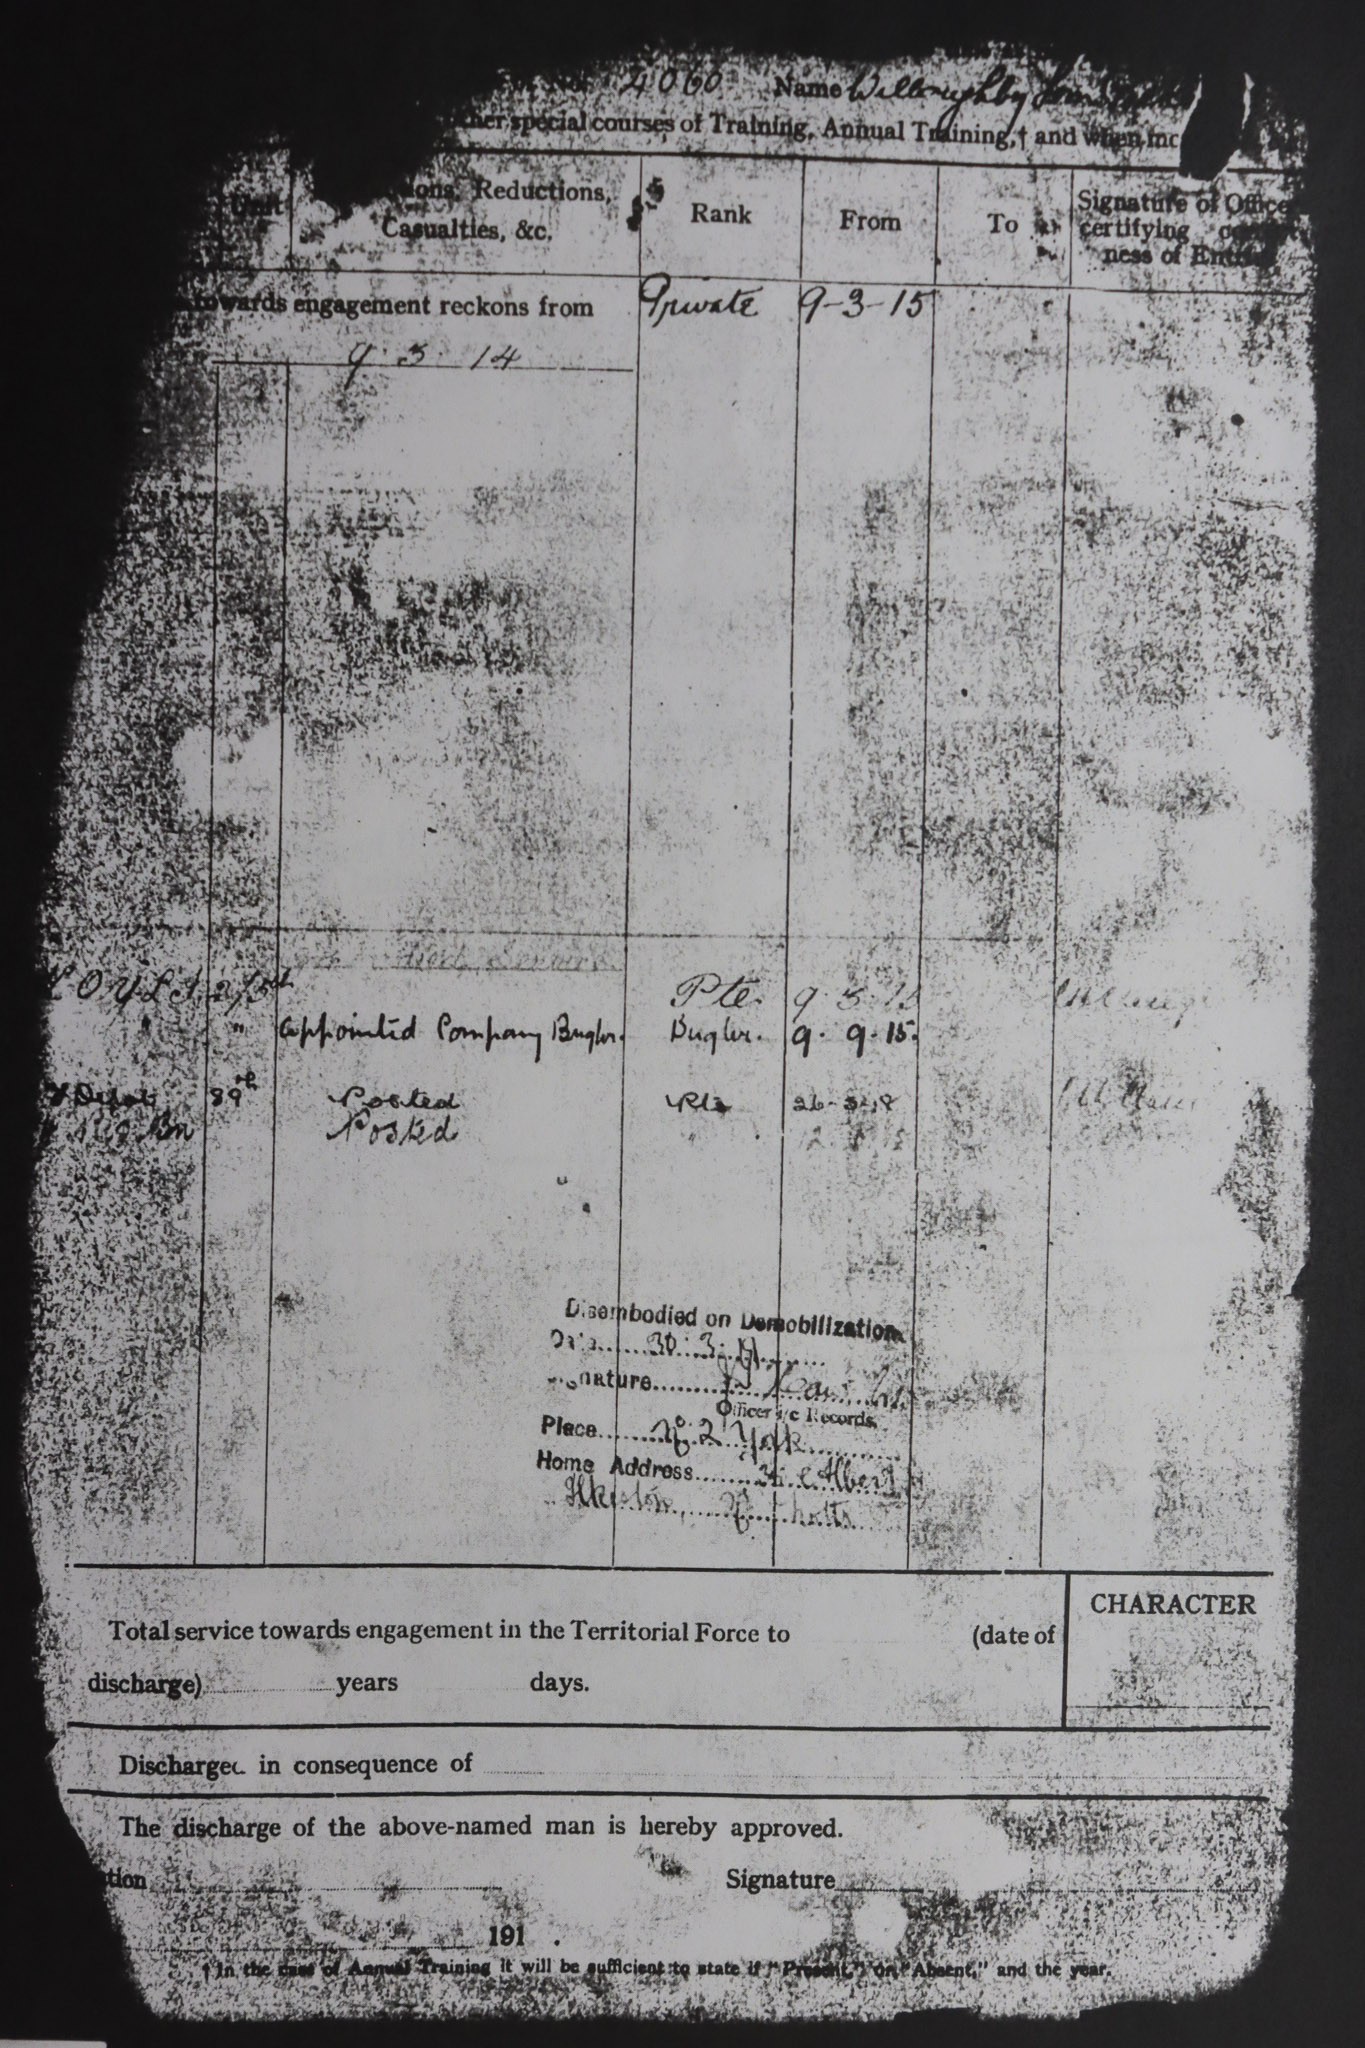 4060 Name Willoughby
her special courses of Training, Annual Training,† and when inc
Unit
ions, Reductions, Casualties, &c.
Rank
From
To
Signature of Office certifying ness of
towards engagement reckons from
Private 9-3-15
9. 3. 14
O Y L I 2/5th Pte. 9. 3. 15
" " Appointed Company Bugler. Bugler. 9. 9. 15.
Depot 89th Posted Pte 26-3-18
Bn Posted
Disembodied on Demobilization
30. 3. 19
nature
Officer i/c Records
Place No. 2 York
Home Address Albert
Ilkeston, Notts
Total service towards engagement in the Territorial Force to (date of
discharge) years days.
CHARACTER
Discharged in consequence of
The discharge of the above-named man is hereby approved.
tion Signature
191 .
† In the case of Annual Training it will be sufficient to state if "Present," or "Absent," and the year.